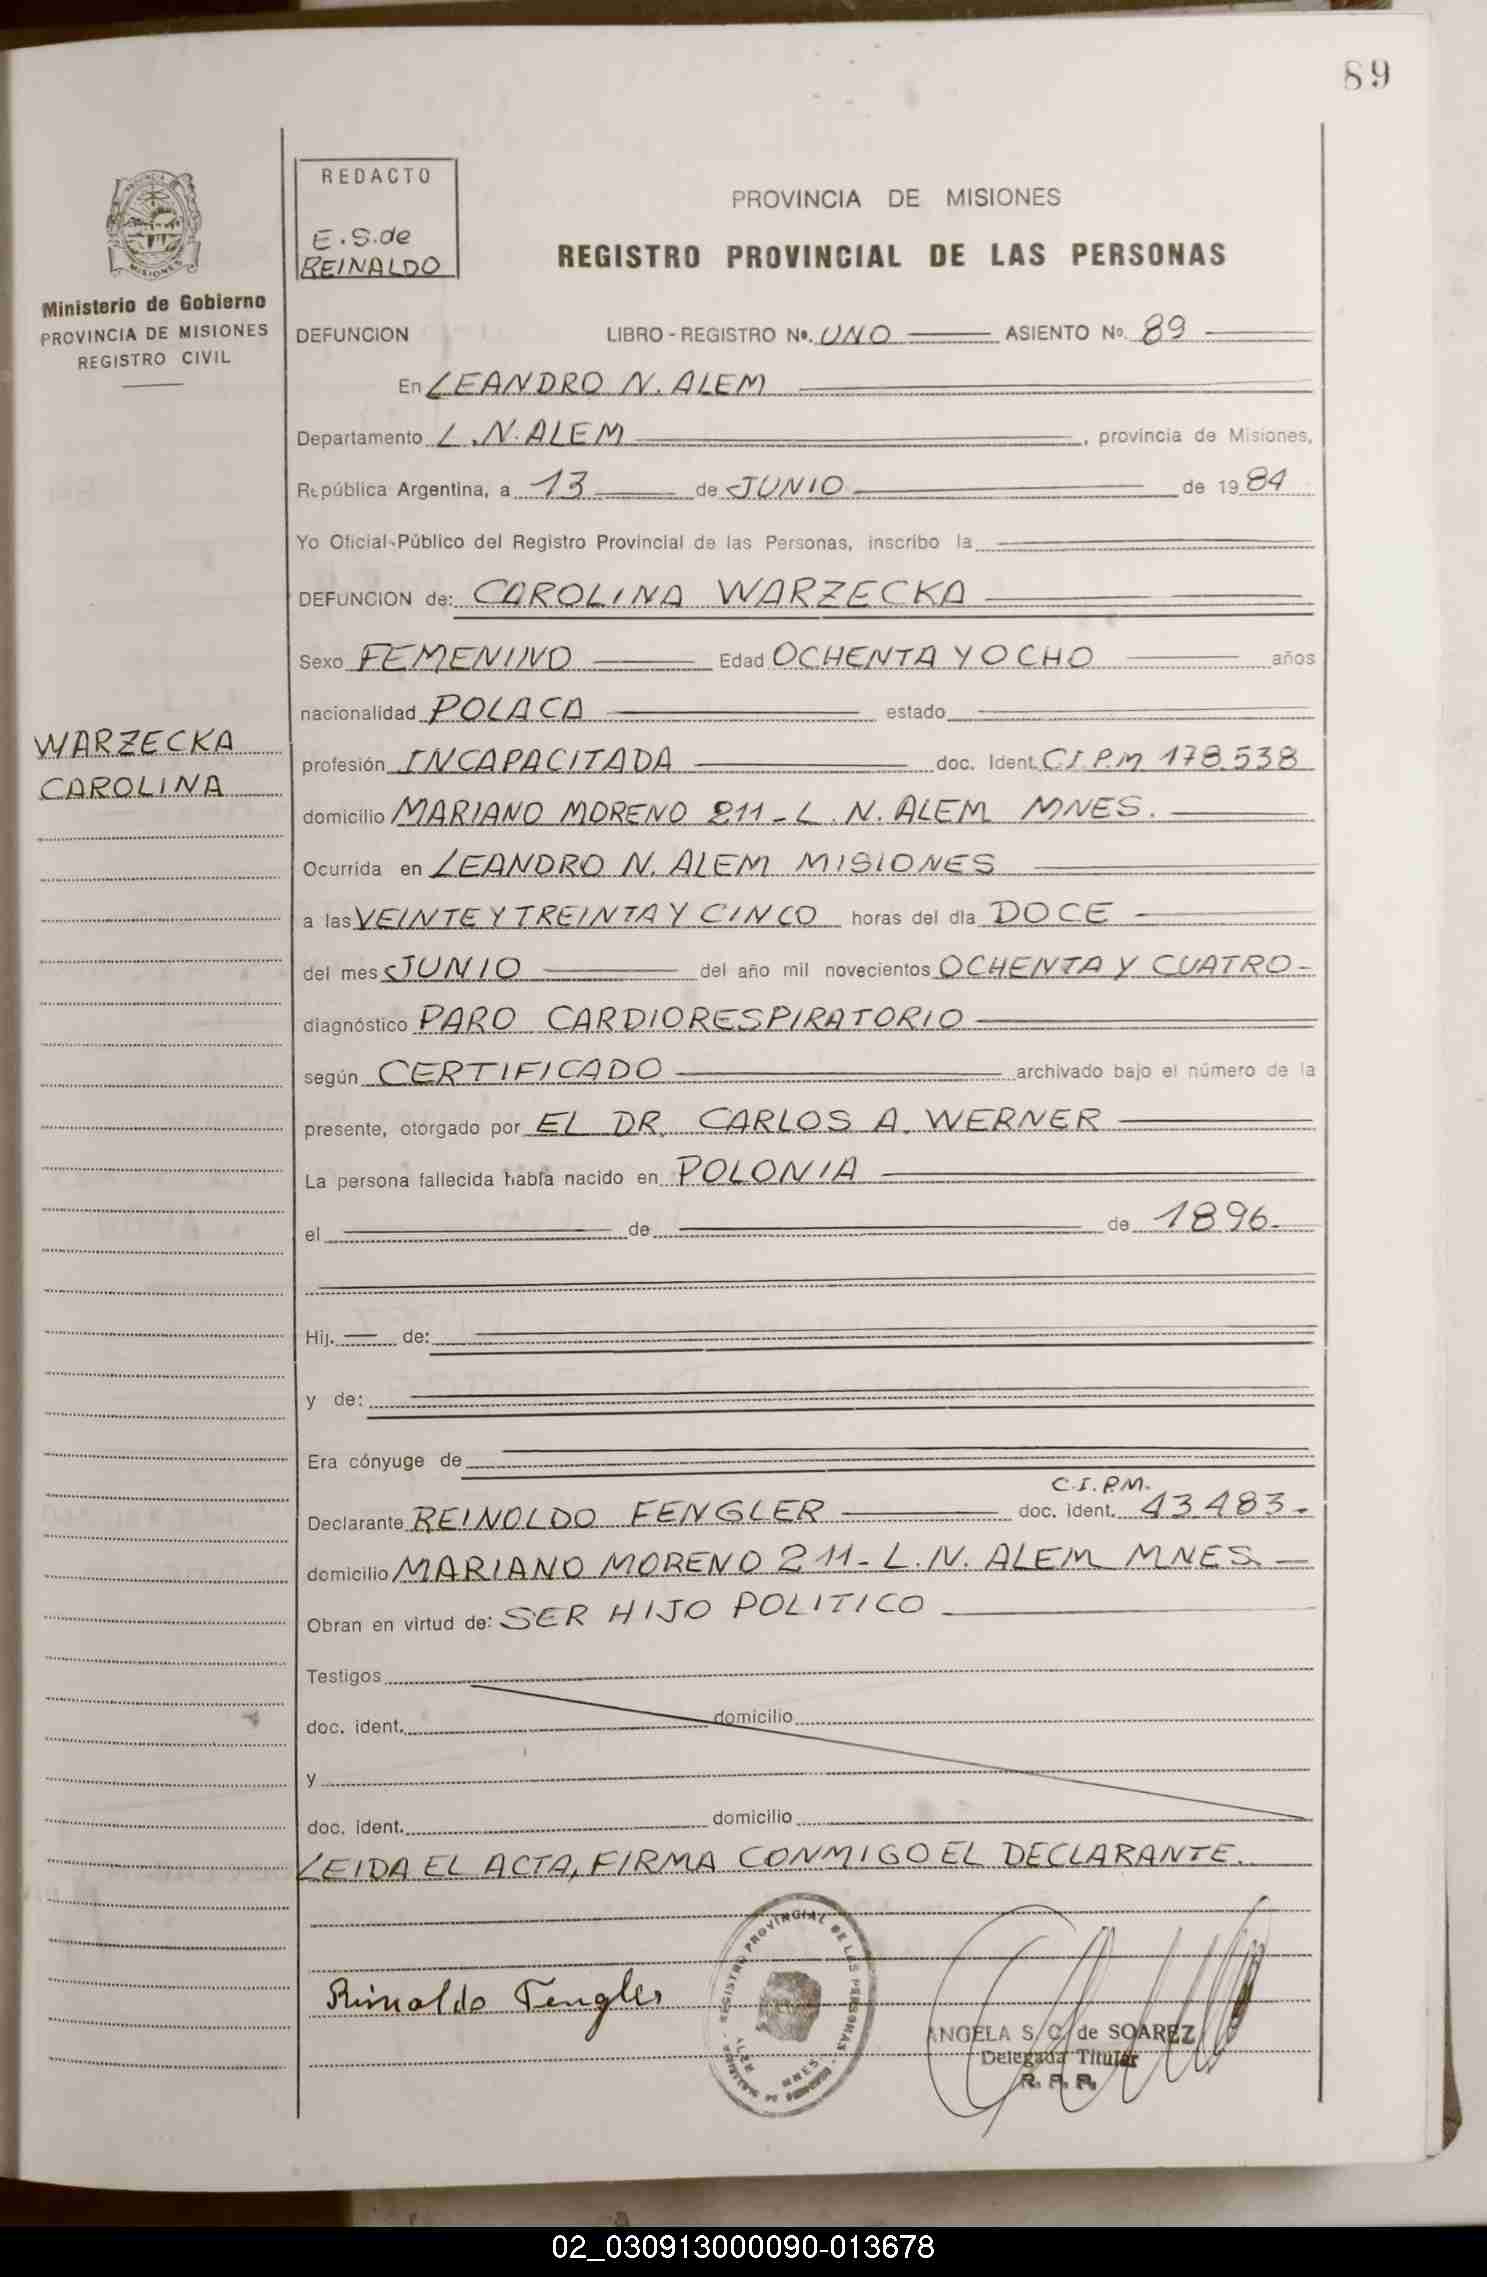 89
REDACTO
E.S. de
REINALDO
PROVINCIA DE MISIONES
REGISTRO PROVINCIAL DE LAS PERSONAS
MISIONES
Ministerio de Gobierno
PROVINCIA DE MISIONES
REGISTRO CIVIL
DEFUNCION LIBRO - REGISTRO Nº. UNO ASIENTO Nº. 89
En LEANDRO N. ALEM
Departamento L.N. ALEM, provincia de Misiones,
República Argentina, a 13 de JUNIO de 1984
Yo Oficial Público del Registro Provincial de las Personas, inscribo la
DEFUNCION de: CAROLINA WARZECKA
Sexo FEMENINO Edad OCHENTA Y OCHO años
nacionalidad POLACA estado
WARZECKA
CAROLINA
profesión INCAPACITADA doc. Ident. C.I.P.M. 178.538
domicilio MARIANO MORENO 211 - L. N. ALEM MNES.
Ocurrida en LEANDRO N. ALEM MISIONES
a las VEINTE Y TREINTA Y CINCO horas del día DOCE
del mes JUNIO del año mil novecientos OCHENTA Y CUATRO -
diagnóstico PARO CARDIORESPIRATORIO
según CERTIFICADO archivado bajo el número de la
presente, otorgado por EL DR. CARLOS A. WERNER
La persona fallecida había nacido en POLONIA
el de de 1896.
Hij. de:
y de:
Era cónyuge de
C.I.P.M.
Declarante REINOLDO FENGLER doc. ident. 43.483.-
domicilio MARIANO MORENO 211 - L.N. ALEM MNES. -
Obran en virtud de: SER HIJO POLITICO
Testigos
doc. ident. domicilio
y
doc. ident. domicilio
LEIDA EL ACTA, FIRMA CONMIGO EL DECLARANTE.
REGISTRO PROVINCIAL DE LAS PERSONAS
ALEM MNES.
Rinaldo Fengler
ANGELA S. C. de SOAREZ
Delegada Titular
R. P. P.
02_030913000090-013678